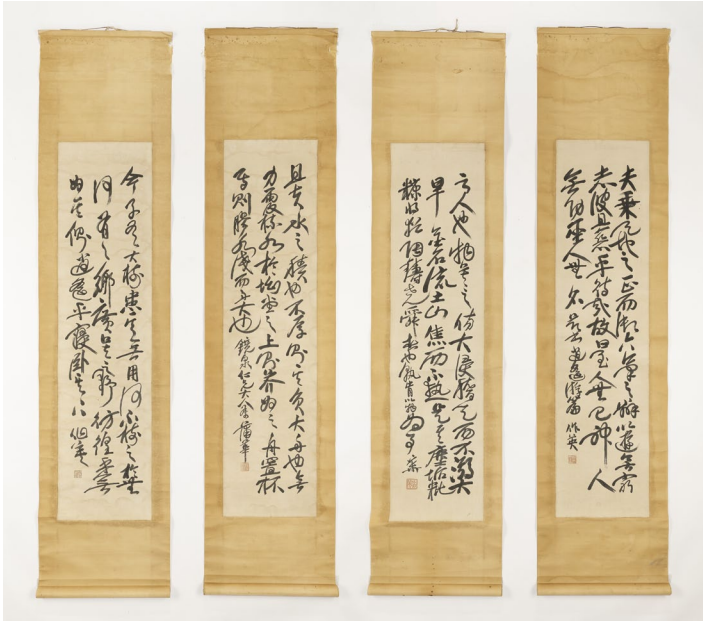 夫乘天地之正而御六氣之辯以遊無窮
者彼且惡乎待哉故曰至人無己神人
無功聖人無名 莊子逍遙遊篇 作英
之人也物莫之傷大浸稽天而不溺大
旱金石流土山焦而不熱是其塵垢粃
糠將猶陶鑄堯舜者也孰肯以物為事
且夫水之積也不厚則其負大舟也無
力覆杯水於坳堂之上則芥為之舟置杯
焉則膠水淺而舟大也 鏡泉仁兄大人屬 蒲華
今子有大樹患其無用何不樹之於無
何有之鄉廣莫之野彷徨乎無
為其側逍遙乎寢臥其下